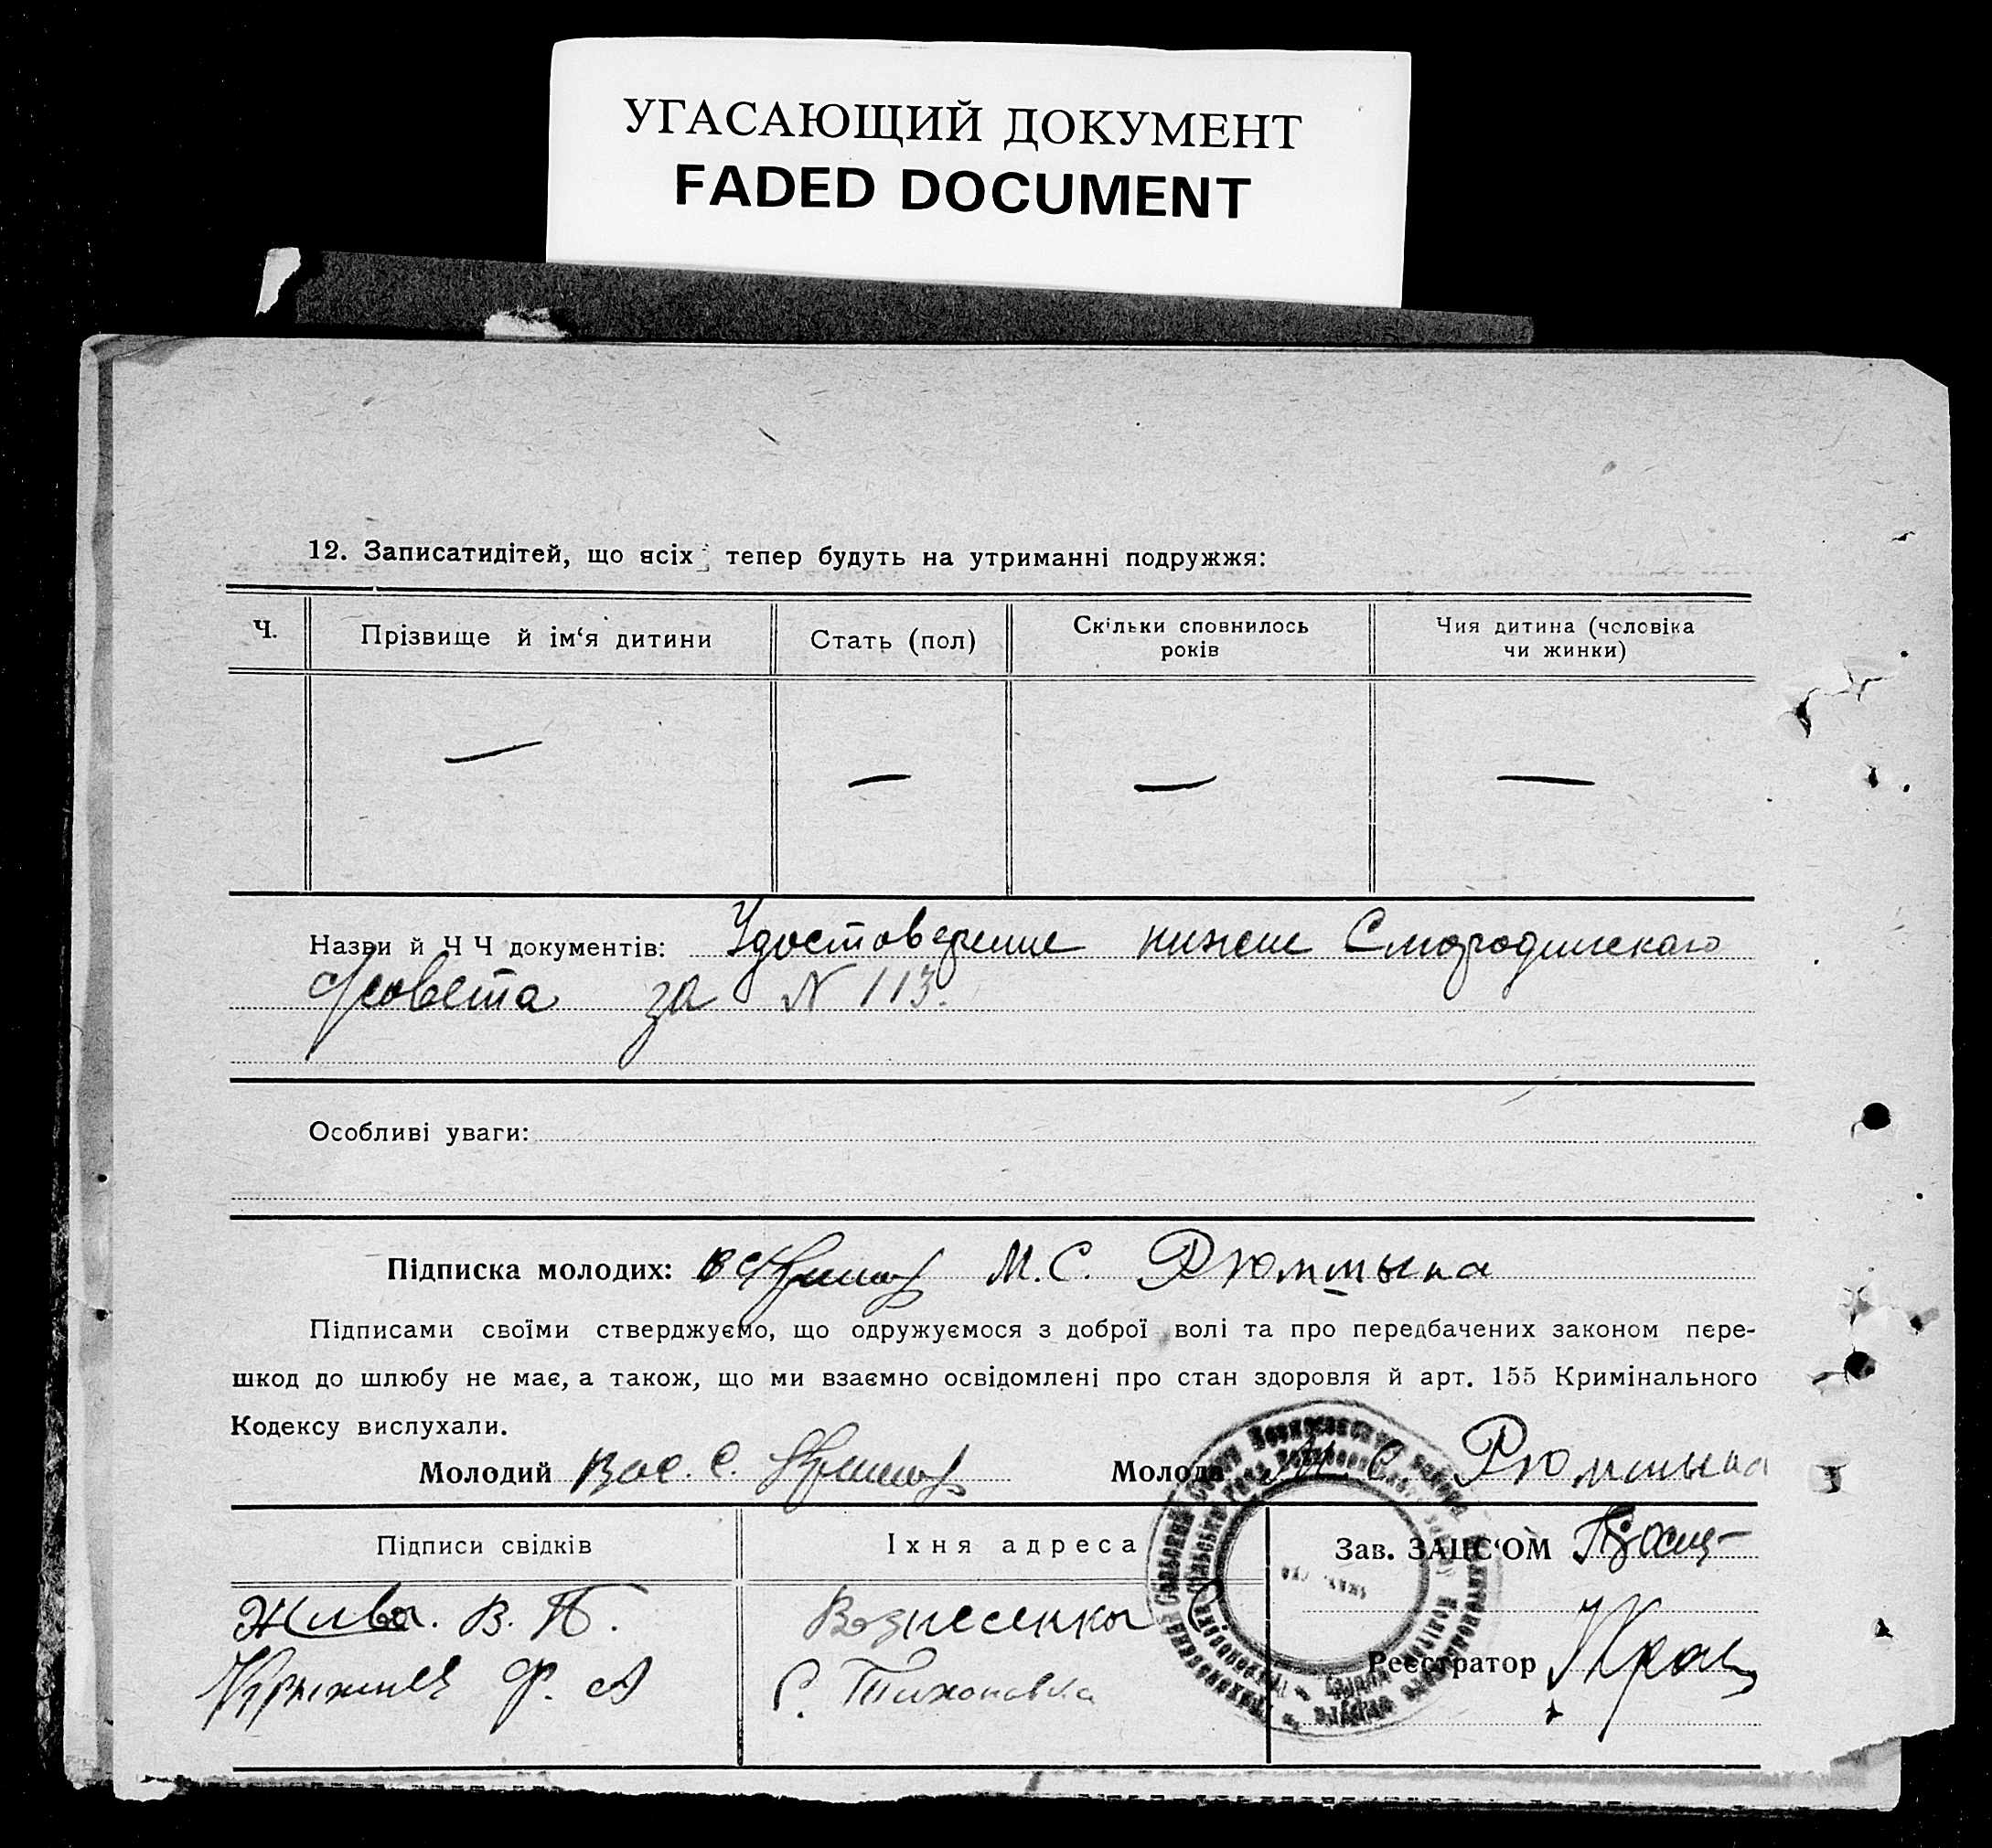 УГАСАЮЩИЙ ДОКУМЕНТ
FADED DOCUMENT
12. Записатидітей, що всіх тепер будуть на утриманні подружжя:
Ч.
Прізвище й ім‘я дитини
Стать (пол)
Скільки сповнилось
років
Чия дитина (чоловіка
чи жинки)
— — — —
Назви й ЧЧ документів: Удостоверение нижне Смородинскаго
с/совета за N 113.
Особливі уваги:
Підписка молодих: М. С. Рюмшына
Підписами своїми стверджуємо, що одружуємося з доброї волі та про передбачених законом пере-
шкод до шлюбу не має, а також, що ми взаємно освідомлені про стан здоровля й арт. 155 Кримінального
Кодексу вислухали.
Молодий Вас. С. Молода М. С. Рюмшына
Підписи свідків
Їхня адреса
Зав. ЗАЦС‘ОМ
В. П. Вознесенка
Ф. А С. Тихоновка
Реєстратор